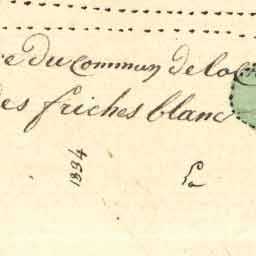 re du commun de loc
des friches blanc
1894
La